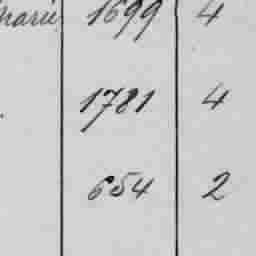 marie 1699 4
1781 4
654 2